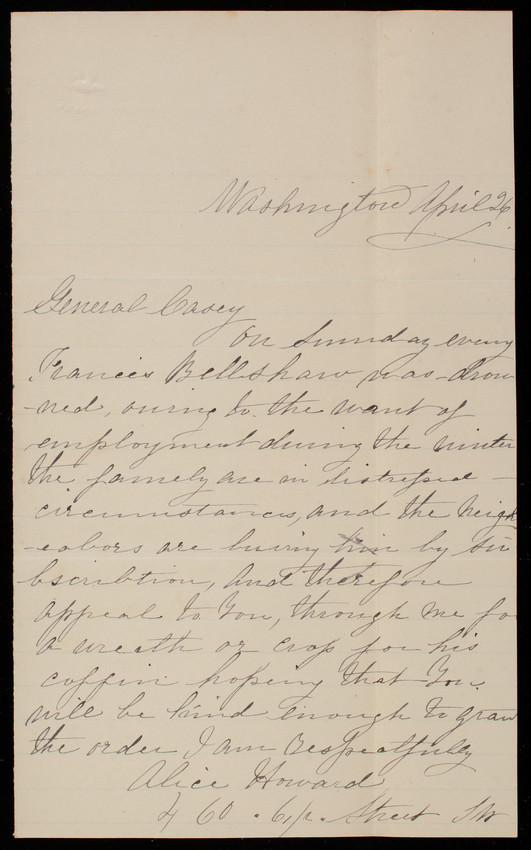 Washington April 26
General Casey
On Sunday eveng
Francis Bellshaw was drow
-ned, owing to the want of
employment during the winter
the famely are in distressed -
circumstances, and the neigh
-eabors are buring him by su
bscribtion, and therefore
appeal to You, through me for
a wreath or crop for his
coffin hopeing that You
will be kind enough to gran
the order I am respectfully
Alice Howard
460 . 6½ . Street SW